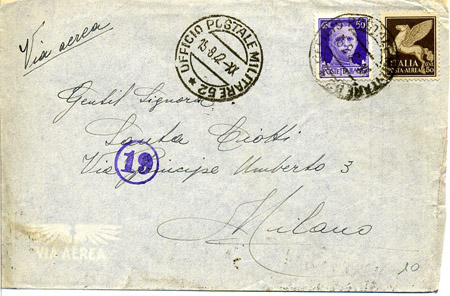 Via aerea
UFFICIO POSTALE MILITARE 52
15.8.42-XX
50
POSTE ITALIANE
ITALIA
POSTA AEREA 50
Gentil Signora
Santa Ciotti
19
Via Principe Umberto 3
Milano
VIA AEREA
20